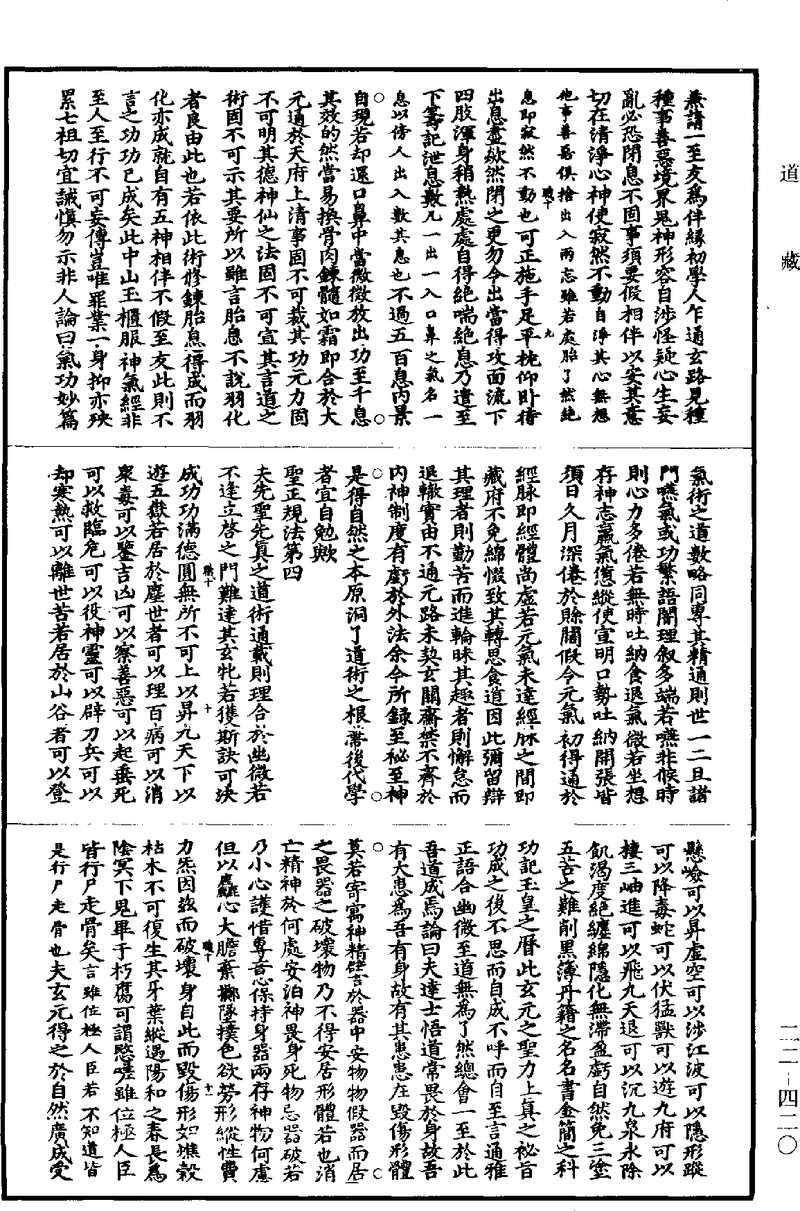 道藏
兼請一至友為伴緣初學人乍通玄路見種
種事善惡境界思神形容自涉怪疑心生妄
亂必恐閉息不固事須要假相伴以安其意
切在清淨心神使寂然不動自淨其心無想
他事善惡俱捨出入兩忘雖若處胎了然絶
息即寂然不動也可正施手足平枕仰卧待
出息盡歘然閉之更勿令出當得攻面流下
四肢渾身稍熱處處自得絶喘絶息乃遣至
下籌記泄息數凡一出一入口鼻之氣名一
息以傍人出入數其息也不過五百息丙景
自現若却還口鼻中當微微放出功至千息
其效的然當易換骨肉鍊髓如霜即合於大
元通於天府上清事固不可裁其功元力固
不可明其德神仙之法固不可宣其言道之
術固不可示其要所以雖言胎息不說羽化
者良由此也若依此術修鍊胎息得成而羽
化亦成就自有五神相伴不假至友此則不
言之功功已成矣此中山玉櫃服神氣經非
至人至行不可妄傳豈唯罪業一身抑亦殃
累七祖切宜誠慎勿示非人論曰氣功妙篇
氣術之道數略同專其精通則世一二旦諸
門嚥氣或功繁語闇理叙多端若嚥非候時
則心力多倦若無時吐納食退氣微若坐想
存神志羸氣憊縱使宣明口勢吐納開張皆
須日久月深倦於賒闊假令元氣初得通於
經脉即經體尚虛若元氣未達經脉之間即
藏府不免綿惙致其轉思食道因此彌留辯
其理者則勤苦而進輪昧其趣者則懈怠而
退轍實由不通元路未契玄關齋禁不齊於
內神制度有虧於外法余今所錄至祕至神
是得自然之本原洞了道術之根蔕後代學
者宜自勉歟
聖正規法第四
夫先聖先真之道術通載則理合於幽微若
不逢立啓之門難達其玄牝若獲斯訣可決
成功功滿德圓無所不可上以昇九天下以
遊五嶽若居於塵世者可以理百病可以消
衆毒可以鑒吉凶可以察善惡可以起垂死
可以救臨危可以役神靈可以辟刀兵可以
却寒熱可以離世苦若居於山谷者可以登
懸嶮可以昇虛空可以涉江波可以隱形蹤
可以降毒蛇可以伏猛獸可以遊九府可以
棲三岫進可以飛九天退可以沉九泉永除
飢渴度絶纏綿隱化無滯盈虧自然免三塗
五苦之難削黑簿丹籍之名名書金簡之科
功記玉皇之曆此玄元之聖力上真之祕旨
功成之後不思而自成不呼而自至言通雅
正語合幽微至道無為了然總會一至於此
吾道成焉論曰夫達士悟道常畏於身故吾
有大患為吾有身故有其患患在毀傷形體
莫若寄寓神精譬言於器中安物物假器而居
之畏器之破壞物乃不得安居形體若也消
亡精神於何處安泊神畏身死物忌器破若
乃小心護惜專意保持身器兩存神物何慮
但以麤心大膽棄擲墜撲色欲勞形縱性費
力炁因茲而破壞身自此而毀傷形如燋穀
枯木不可復生其牙葉縱遇陽和之春長為
陰冥下鬼畢于朽腐可謂愍嗟雖位極人臣
皆行尸走骨矣言雖位極人臣若不知道皆
是行尸走骨也夫玄元得之於自然廣成受
二二-四二〇